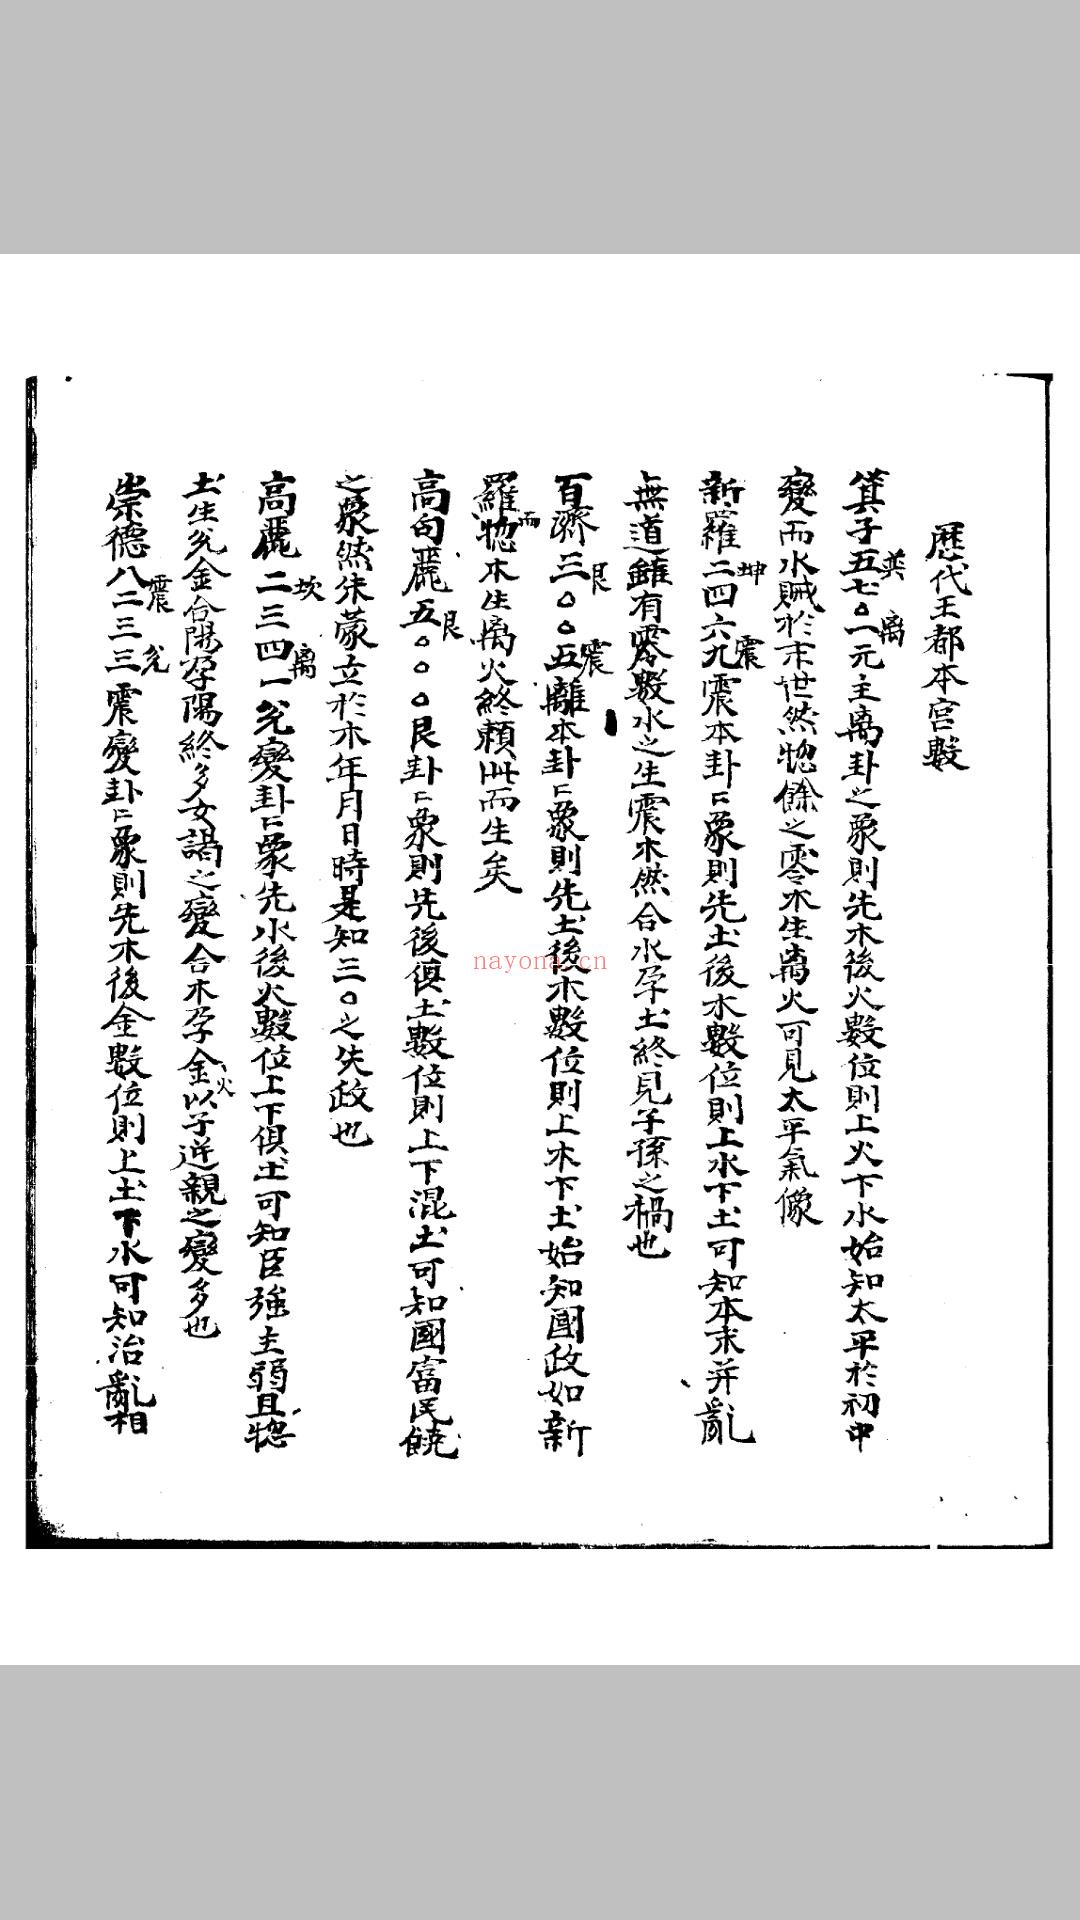 歷代王都本宮數
箕子五七〇一元主离卦之象則先木後火數位則上火下水始知太平於初中
巽 离
變而水賊於末世然惚餘之零木生离火可見太平氣像
新羅二四六九震本卦〻象則先土後木數位則上水下土可知本末并亂
坤 震
無道雖有零數水之生震木然合水孕土終見子孫之禍也
百濟三〇〇五離本卦〻象則先土後木數位則上木下土始知國政如新
艮 震
羅惚木生离火終賴此而生矣
而
高句麗五〇〇〇艮卦〻象則先後俱土數位則上下混土可知國富民饒
艮
之象然朱蒙立於木年月日時是知三〇之失政也
高麗二三四一兌變卦〻象先水後火數位上下俱土可知臣強主弱且惚
坎 离
土生兌金合陽孕陽終多女謁之變合木孕金以子逆親之變多也
火
崇德八二三三震變卦〻象則先木後金數位則上土下水可知治亂相
震 兌
nayona.cn